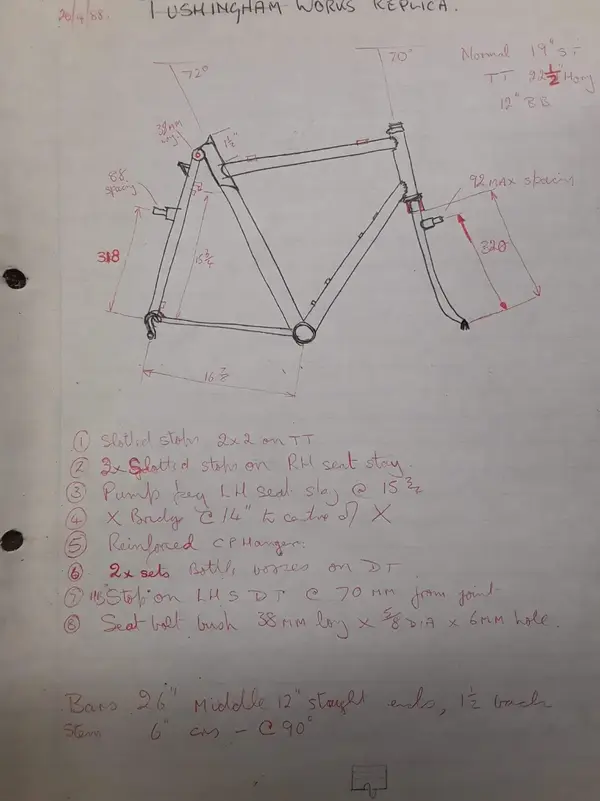 20/4/88. TUSHINGHAM WORKS REPLICA.
Normal 19" ST
TT 22 1/2" Horz
12" BB
72°
70°
38MM
1 1/2"
88 spacing
92 MAX spacing
318
15 3/4
320
16 7/8
① Slotted stops 2x2 on TT
② 2x Slotted stops on RH seat stay.
③ Pump peg LH seat stay @ 15 3/4
④ X Bridge @ 14" to centre of X
⑤ Reinforced CP Hanger.
⑥ 2x sets Bottle bosses on DT
⑦ Stop on LHS DT @ 70 MM from joint
⑧ Seat bolt bush 38MM long x 5/8 DIA x 6MM hole.
Bars 26" Middle 12" staight ends, 1 1/2 back
Stem 6" cms - @ 90°